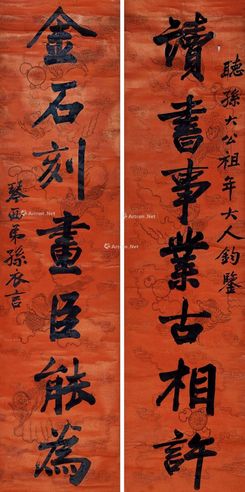 聽孫大公祖年大人鈞鑒
讀書事業古相許
金石刻畫臣能為
琴西弟孫衣言